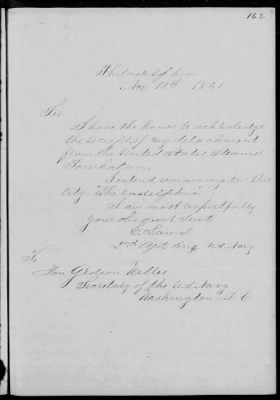 162
Philadelphia
Nov 18th 1861
Sir
I have the honor to acknowledge
the receipt of my detachment
from the United States Steamer
I intend remaining in this
City "Philadelphia"
I am most respectfully
your obedient Servt
2nd Asst Eng U.S. Navy
To
Hon Gideon Welles
Secretary of the U.S. Navy
Washington D.C.